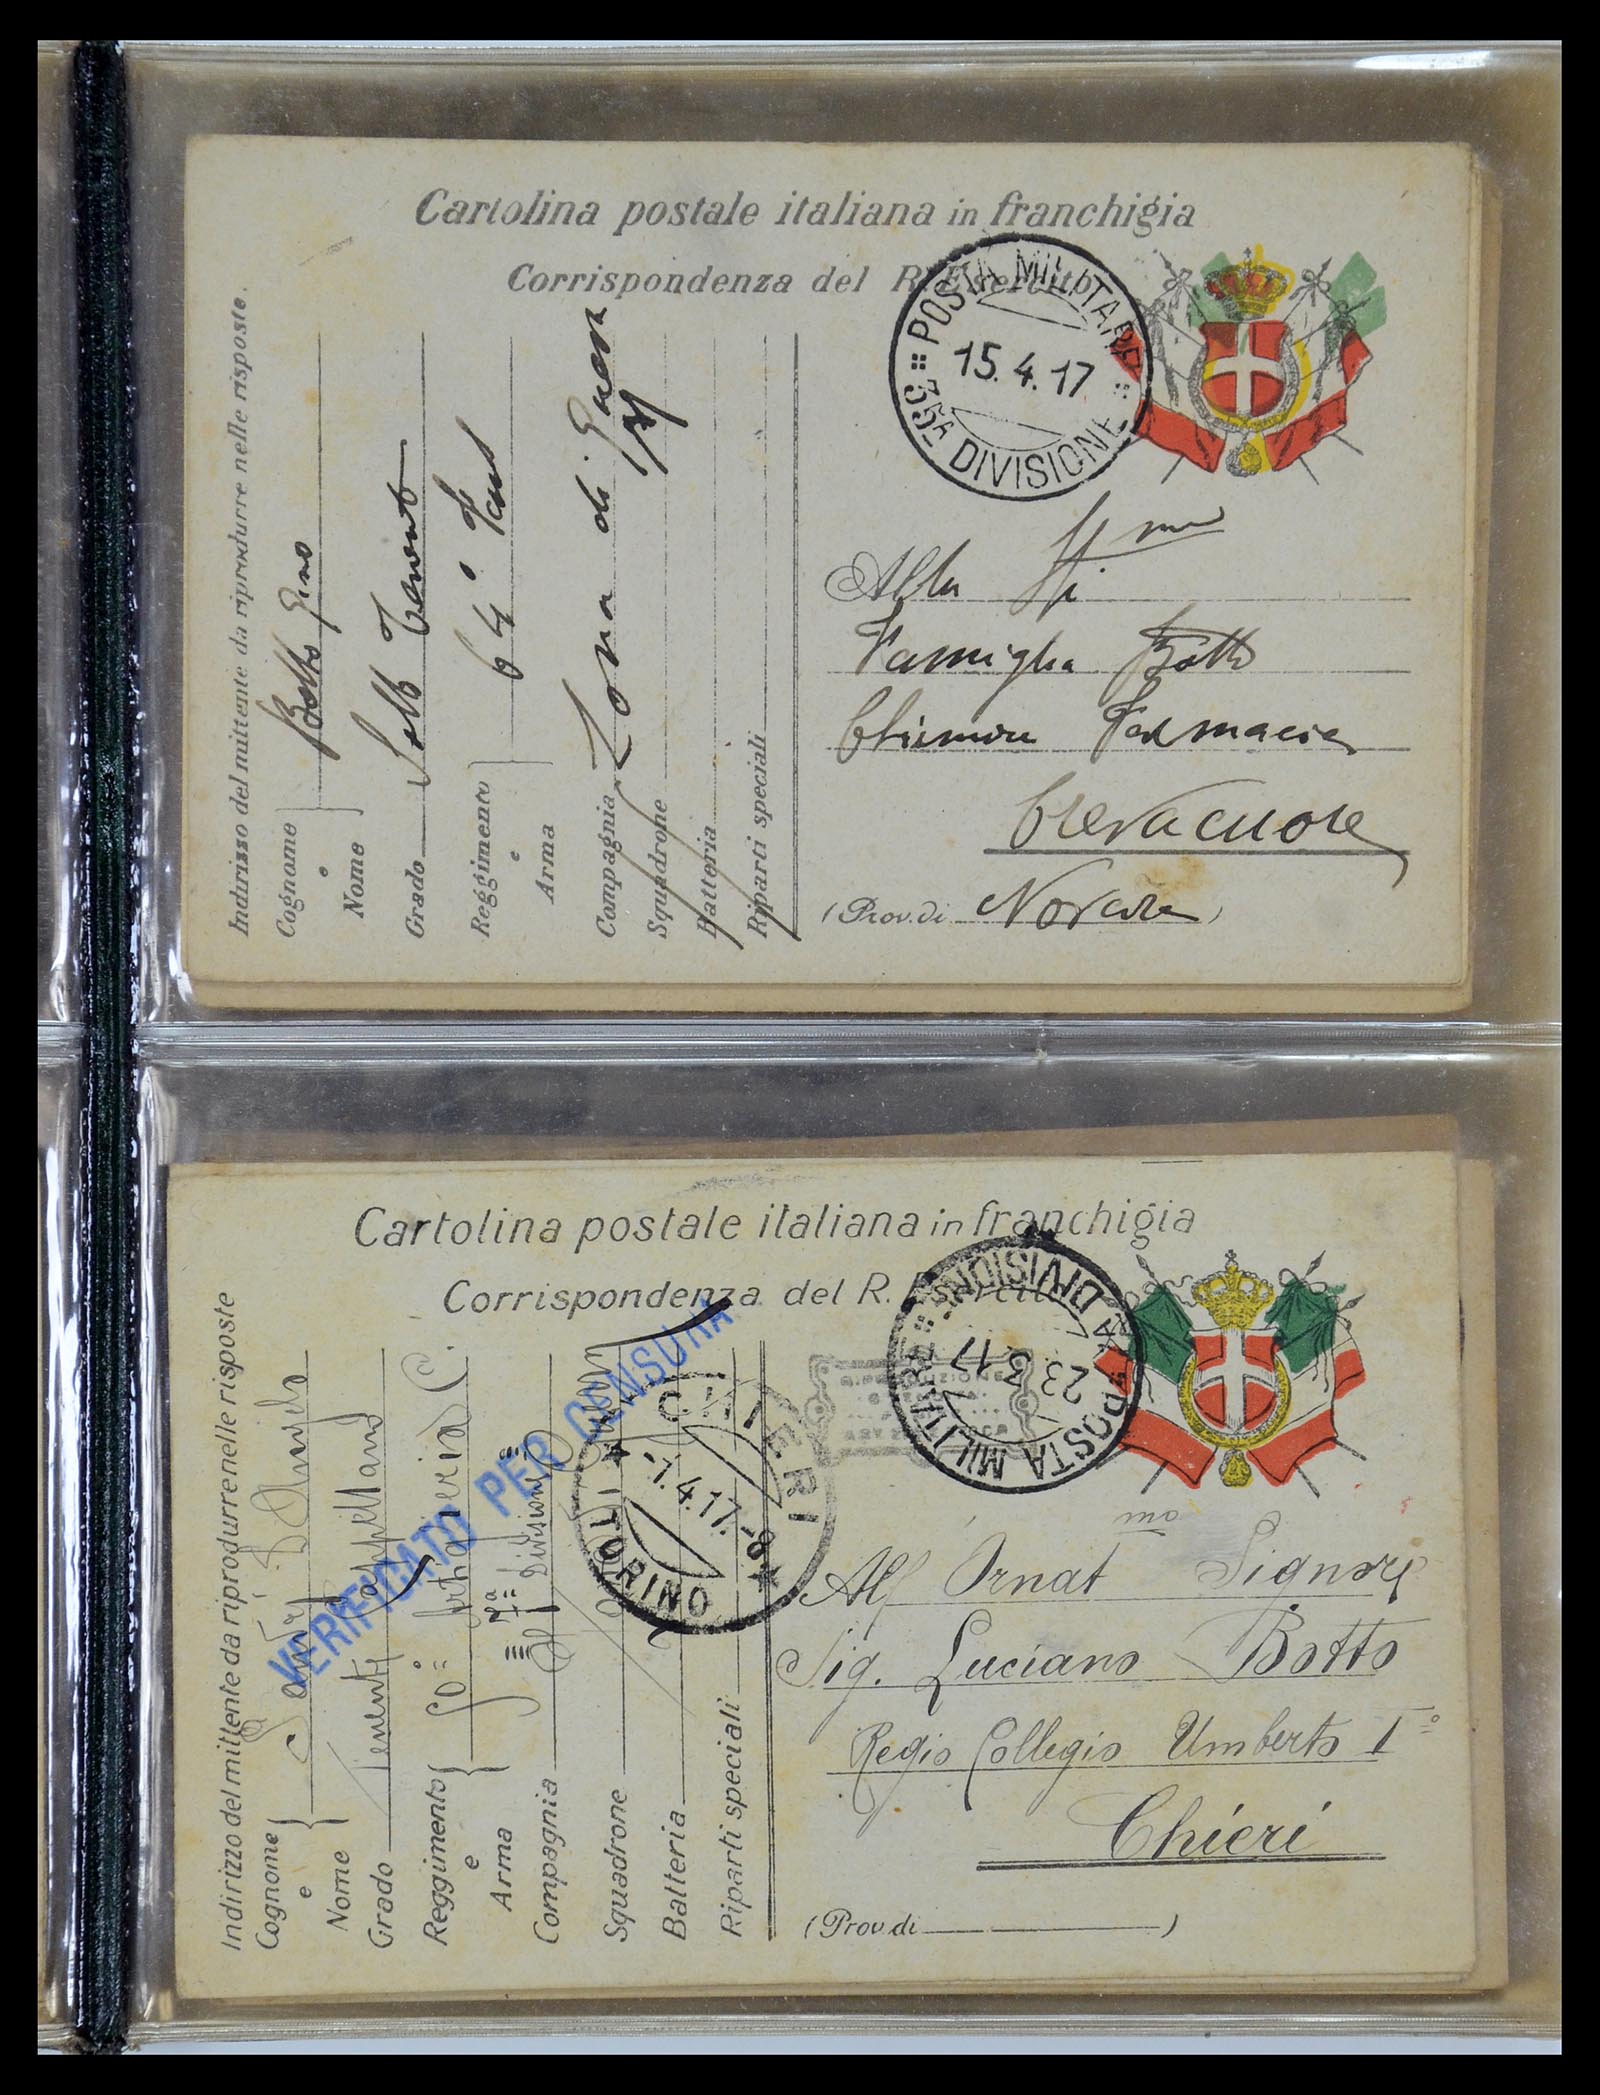 Cartolina postale italiana in franchigia
Corrispondenza del R. Esercito
POSTA MILITARE
15. 4. 17
35A DIVISIONE
Indirizzo del mittente da riprodurre nelle risposte.
Cognome e Nome } Botto Gino
Grado Sotto Tenente
Reggimento e Arma } 64° Fant
Compagnia Zona di Guerra
Squadrone
Batteria
Riparti speciali
Alla
Famiglia Botto
Farmacia
Crevacuore
(Prov. di Novara)
Cartolina postale italiana in franchigia
Corrispondenza del R. Esercito
POSTA MILITARE
A DIVISIONE
23. 3. 17
Indirizzo del mittente da riprodurre nelle risposte
Cognome e Nome } D'Angelo
Grado Tenente Cappellano
Reggimento e Arma } Artiglieria
Compagnia Divisione
Squadrone
Batteria
Riparti speciali
VERIFICATO PER CENSURA
CHIERI
1. 4. 17. -8
TORINO
All' Ornat mo Signore
Sig. Luciano Botto
Regio Collegio Umberto I°
Chieri
(Prov. di )